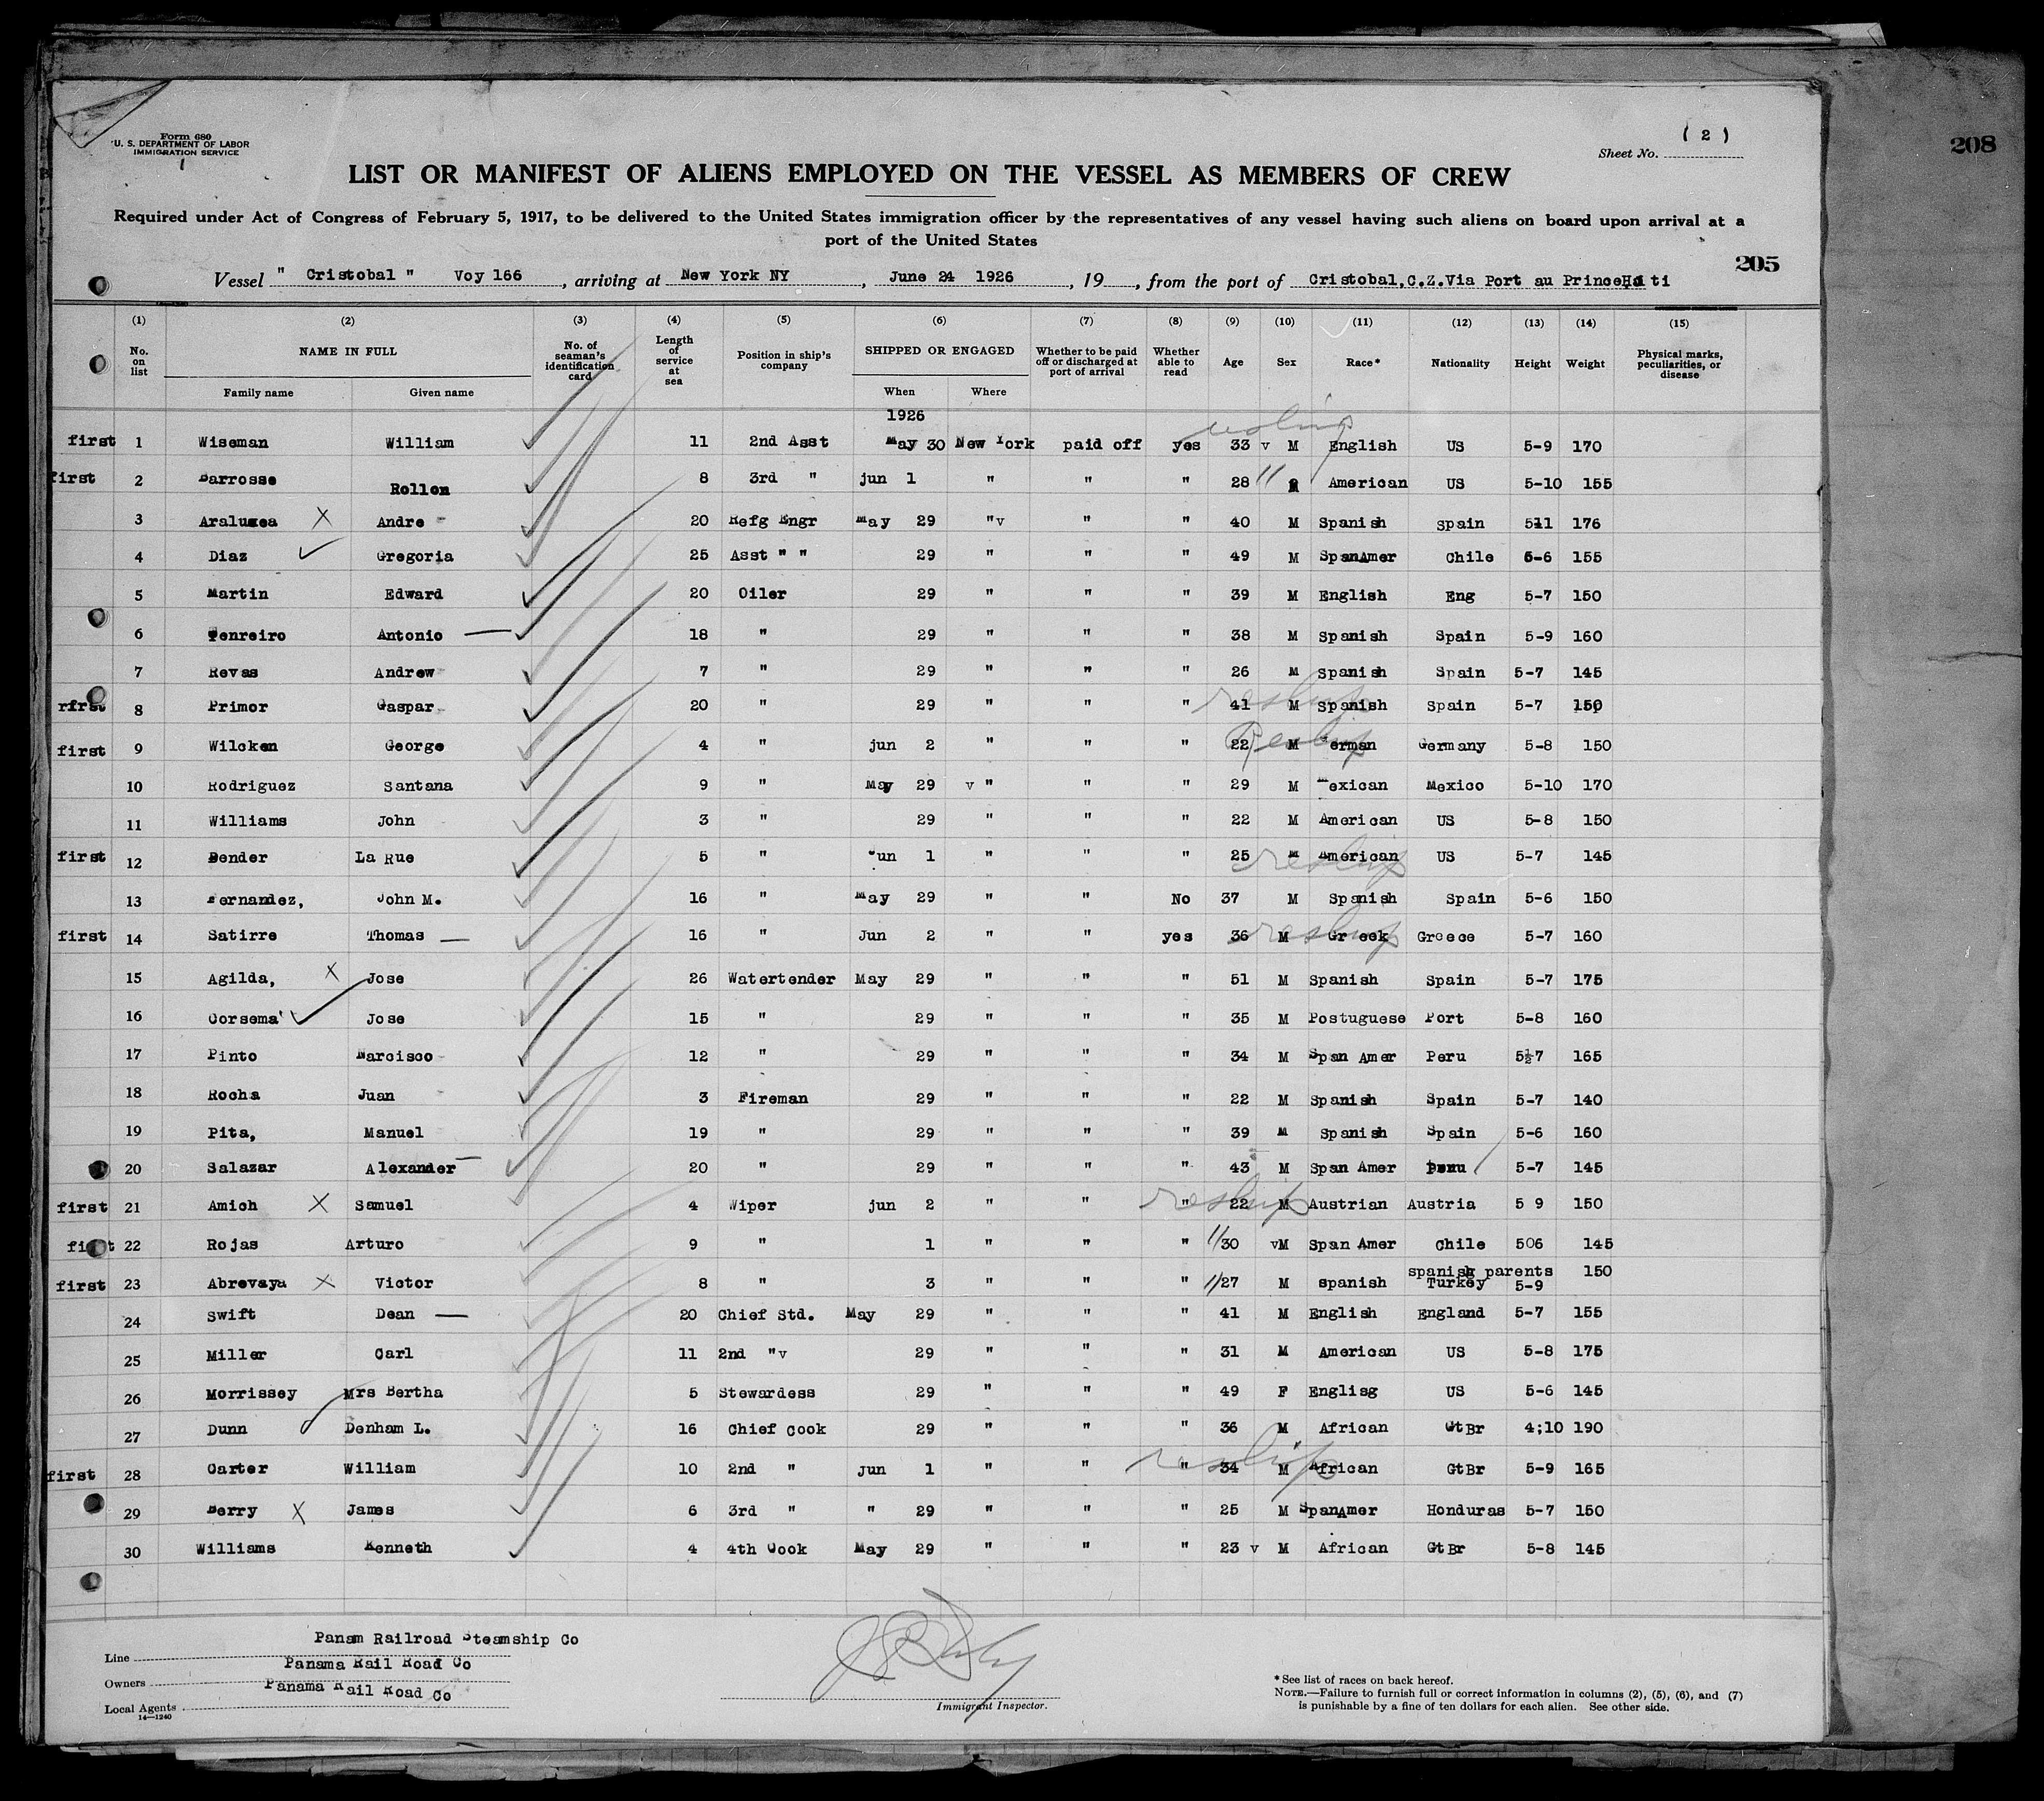 208
Form 680
U. S. DEPARTMENT OF LABOR
IMMIGRATION SERVICE
( 2 )
Sheet No.
LIST OR MANIFEST OF ALIENS EMPLOYED ON THE VESSEL AS MEMBERS OF CREW
Required under Act of Congress of February 5, 1917, to be delivered to the United States immigration officer by the representatives of any vessel having such aliens on board upon arrival at a
port of the United States
205
Vessel " Cristobal " Voy 166 , arriving at New York NY , June 24 1926 , 19 , from the port of Cristobal,C.Z.Via Port au Prince Haiti
(1) (2) (3) (4) (5) (6) (7) (8) (9) (10) (11) (12) (13) (14) (15)
No. on list NAME IN FULL Family name Given name No. of seaman's identification card Length of service at sea Position in ship's company SHIPPED OR ENGAGED When Where Whether to be paid off or discharged at port of arrival Whether able to read Age Sex Race* Nationality Height Weight Physical marks, peculiarities, or disease
1926
first 1 Wiseman William 11 2nd Asst May 30 New York paid off yes 33 v M English US 5-9 170
first 2 Barrosse Rollen 8 3rd " jun 1 " " " 28 11 American US 5-10 155
3 X Andre 20 Refg Engr May 29 "v " " 40 M Spanish Spain 511 176
4 Diaz Gregoria 25 Asst " " 29 " " " 49 M SpanAmer Chile 5-6 155
5 Martin Edward 20 Oiler 29 " " " 39 M English Eng 5-7 150
6 Tenreiro Antonio 18 " 29 " " " 38 M Spanish Spain 5-9 160
7 Revas Andrew 7 " 29 " " " 26 M Spanish Spain 5-7 145
rfrst 8 Primor Gaspar 20 " 29 " " " 41 M Spanish Spain 5-7 150 reship
first 9 Wilcken George 4 " jun 2 " " " 22 M German Germany 5-8 150 Reship
10 Rodriguez Santana 9 " May 29 v " " " 29 M Mexican Mexico 5-10 170
11 Williams John 3 " 29 " " " 22 M American US 5-8 150
first 12 Bender La Rue 5 " Jun 1 " " " 25 M American US 5-7 145 reship
13 Fernandez, John M. 16 " May 29 " " No 37 M Spanish Spain 5-6 150
first 14 Satirre Thomas 16 " Jun 2 " " yes 36 M Greek Greece 5-7 160 reship
15 Agilda, X Jose 26 Watertender May 29 " " " 51 M Spanish Spain 5-7 175
16 Corsema' Jose 15 " 29 " " " 35 M Postuguese Port 5-8 160
17 Pinto Narcisco 12 " 29 " " " 34 M Span Amer Peru 5½7 165
18 Rocha Juan 3 Fireman 29 " " " 22 M Spanish Spain 5-7 140
19 Pita, Manuel 19 " 29 " " " 39 M Spanish Spain 5-6 160
20 Salazar Alexander 20 " 29 " " " 43 M Span Amer Peru 5-7 145
first 21 Amich X Samuel 4 Wiper jun 2 " " " 22 M Austrian Austria 5 9 150 reship
first 22 Rojas Arturo 9 " 1 " " " 11/30 vM Span Amer Chile 506 145
spanish parents
first 23 Abrevaya X Victor 8 " 3 " " " 11/27 M spanish Turkey 5-9 150
24 Swift Dean 20 Chief Std. May 29 " " " 41 M English England 5-7 155
25 Miller Carl 11 2nd "v 29 " " " 31 M American US 5-8 175
26 Morrissey Mrs Bertha 5 Stewardess 29 " " " 49 F Englisg US 5-6 145
27 Dunn Denham L. 16 Chief Cook 29 " " " 36 M African GtBr 4;10 190
first 28 Carter William 10 2nd " Jun 1 " " " 34 M African GtBr 5-9 165 reship
29 Berry X James 6 3rd " " 29 " " " 25 M SpanAmer Honduras 5-7 150
30 Williams Kenneth 4 4th Cook May 29 " " " 23 v M African GtBr 5-8 145
Line Panam Railroad Steamship Co
Owners Panama Rail Road Co
Local Agents Panama Rail Road Co
14—1240
Immigrant Inspector.
* See list of races on back hereof.
NOTE.—Failure to furnish full or correct information in columns (2), (5), (6), and (7)
is punishable by a fine of ten dollars for each alien. See other side.